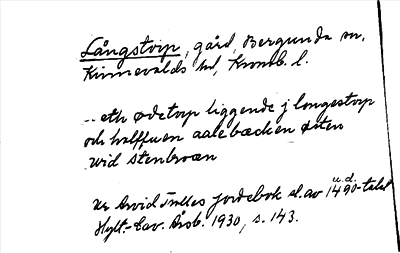 Långstorp, gård, Bergunda sn,
Kinnevalds hd, Kronob. l.
... eth ødetorp liggende j longestorp
och halffuen aale bæcken østen
wid stenbroæn
Ur Arvid Trolles jordebok sl. av 1490-talet u.d.
Hylt.-Cav. Årsb. 1930, s. 143.